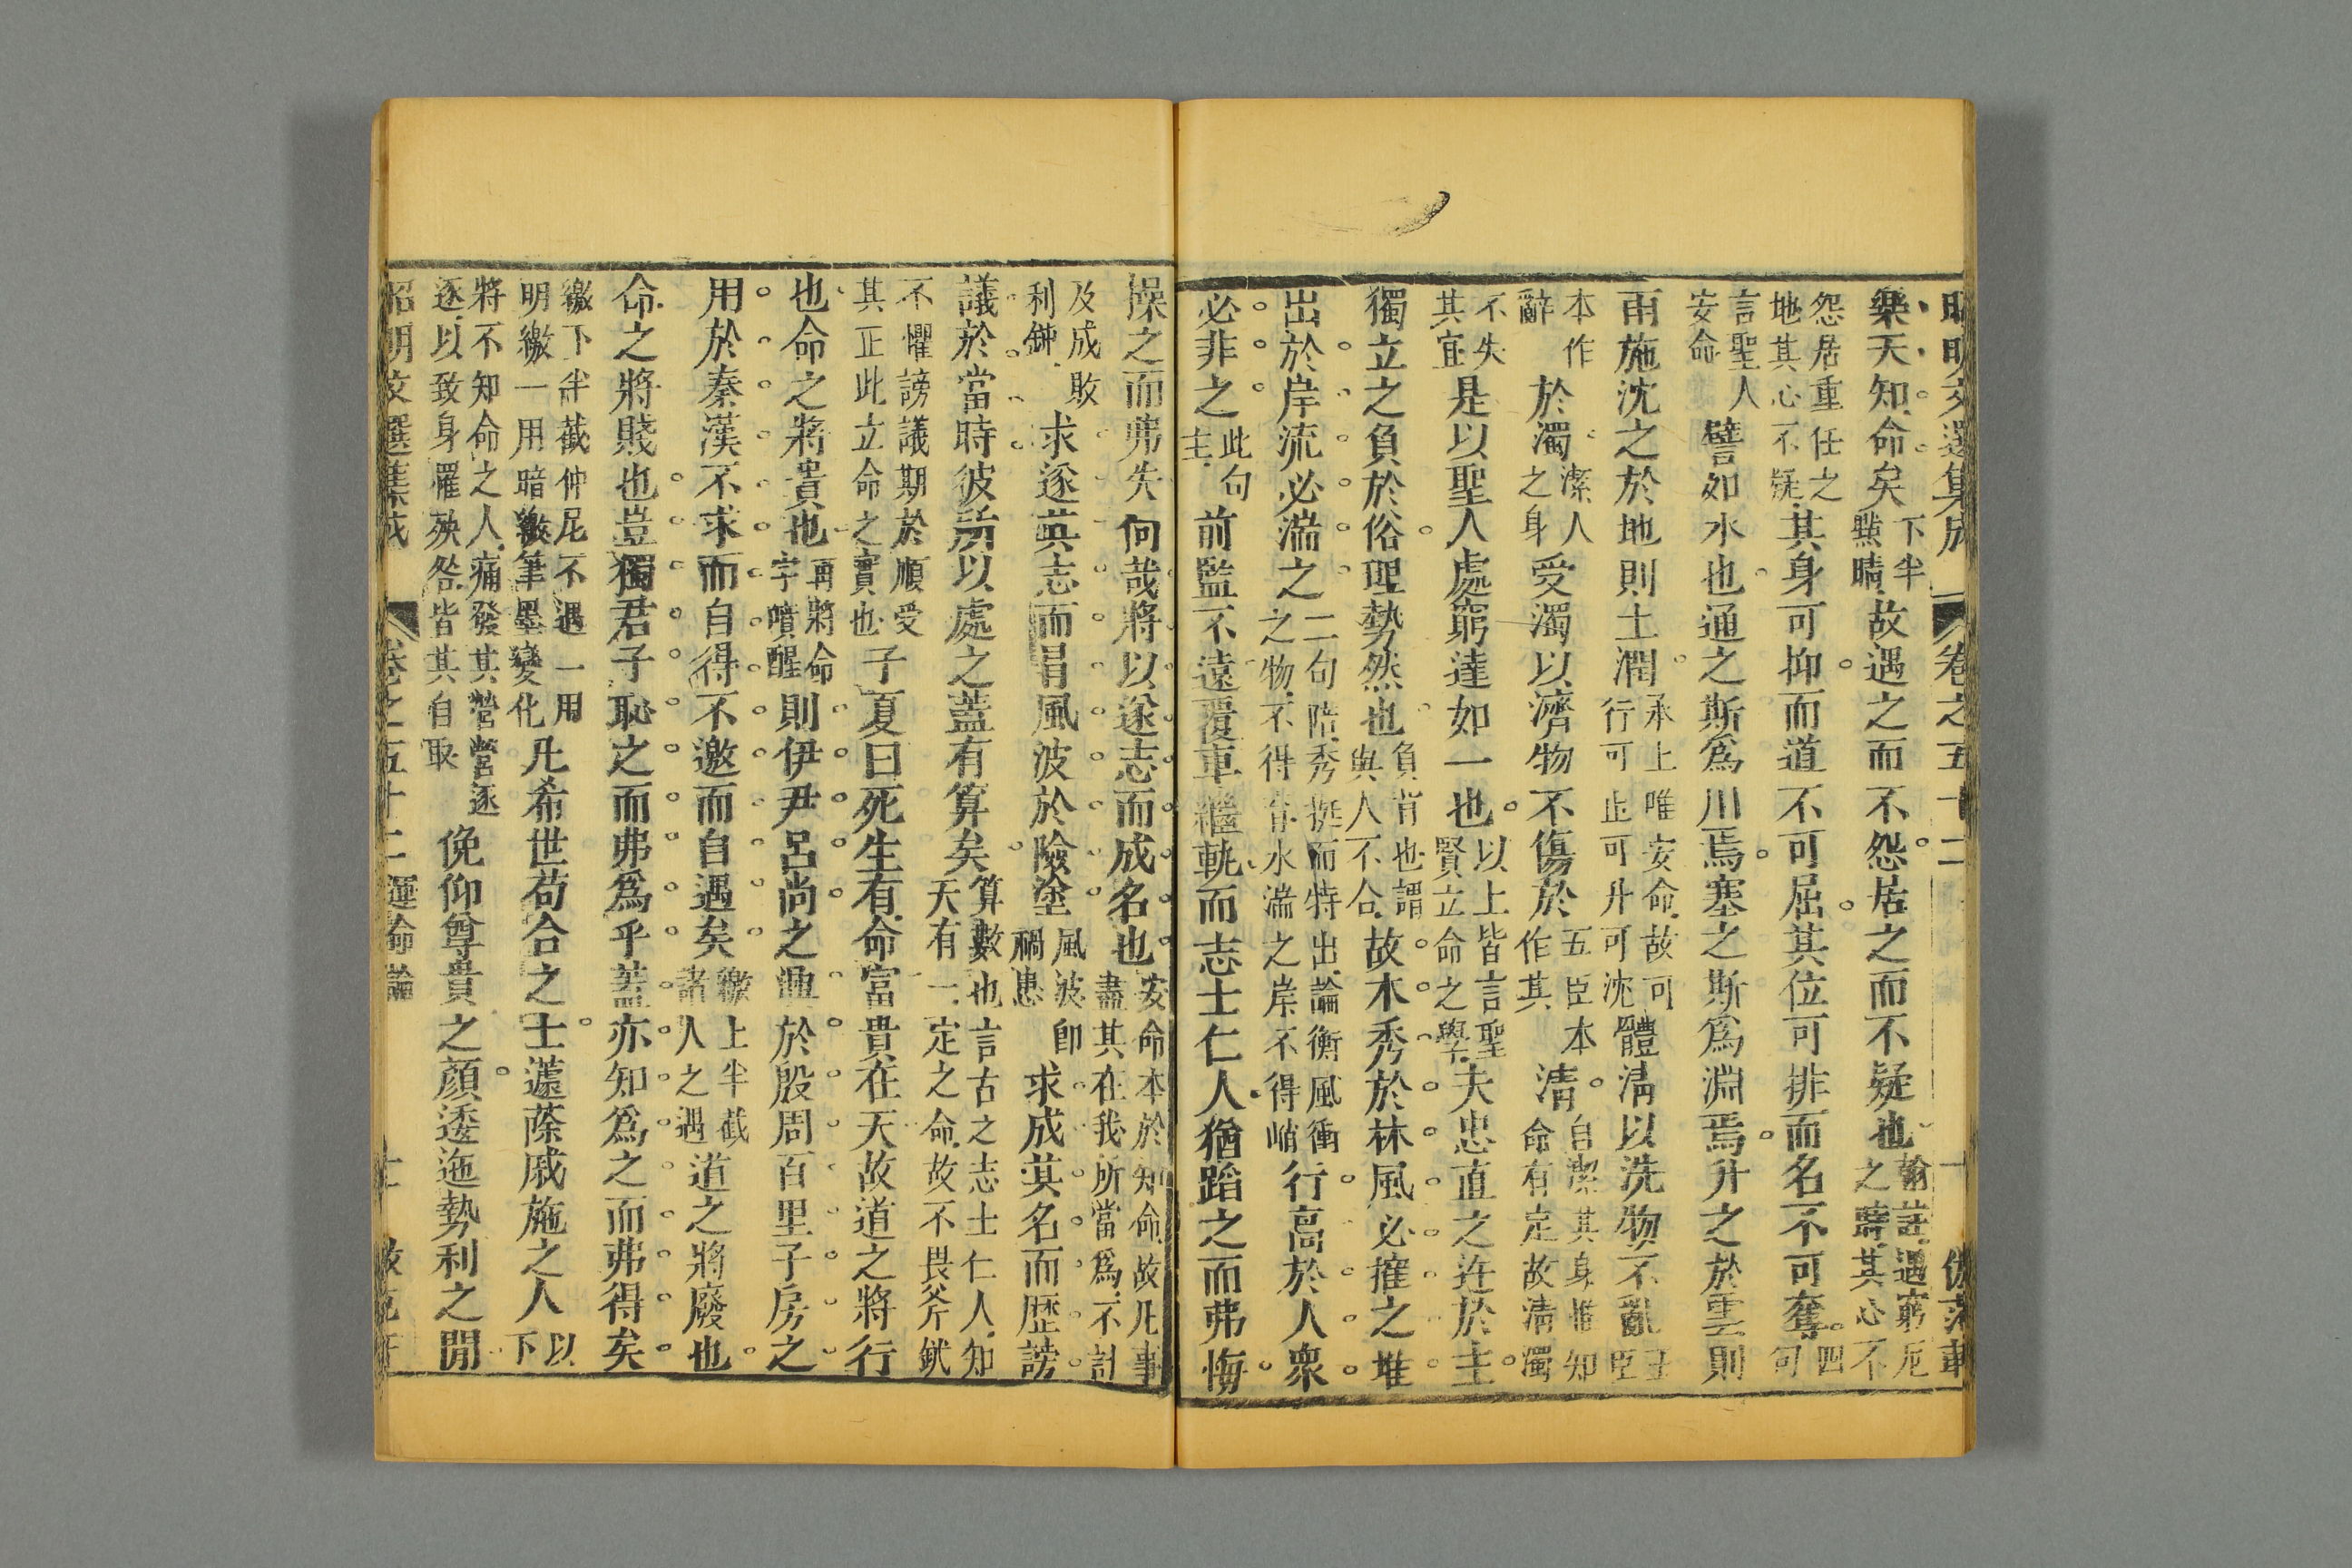 昭明文選集成　卷之五十二　十
樂天知命矣下半點睛故遇之而不怨居之而不疑也翰註遇窮厄之時其心不
怨居重任之地其心不疑其身可抑而道不可屈其位可排而名不可奪四句
言聖人安命譬如水也通之斯爲川焉塞之斯爲淵焉升之於雲則
雨施沈之於地則土潤承上唯安命故可行可止可升可沈體淸以洗物不亂五臣
本作辭於濁潔人之身受濁以濟物不傷於五臣本作其淸自潔其身惟知命有定故淸濁
不失其宜是以聖人處窮達如一也以上皆言聖賢立命之學夫忠直之迕於主
獨立之負於俗理勢然也負背也謂與人不合故木秀於林風必摧之堆
出於岸流必湍之二句陪秀挺而特出論衡風衝之物不得育水湍之岸不得峭行高於人衆
必非之此句主前監不遠覆車繼軌而志士仁人猶蹈之而弗悔
操之而弗失何哉將以遂志而成名也安命本於知命故凡事盡其在我所當爲不計
及成敗利鈍求遂其志而冒風波於險塗風波卽禍患求成其名而歷謗
議於當時彼所以處之蓋有算矣算數也言古之志士仁人知天有一定之命故不畏斧鉞
不懼謗議期於順受其正此立命之實也子夏曰死生有命富貴在天故道之將行
也命之將貴也兩將命字噴醒則伊尹呂尙之興於殷周百里子房之
用於秦漢不求而自得不邀而自遇矣繳上半截諸人之遇道之將廢也
命之將賤也豈獨君子恥之而弗爲乎蓋亦知爲之而弗得矣
繳下半截仲尼不遇一用明繳一用暗繳筆墨變化凡希世苟合之士蘧蒢戚施之人以下
將不知命之人痛發其營營逐逐以致身罹殃咎皆其自取俛仰尊貴之顏逶迤勢利之閒
昭明文選集成　卷之五十二　運命論　十一